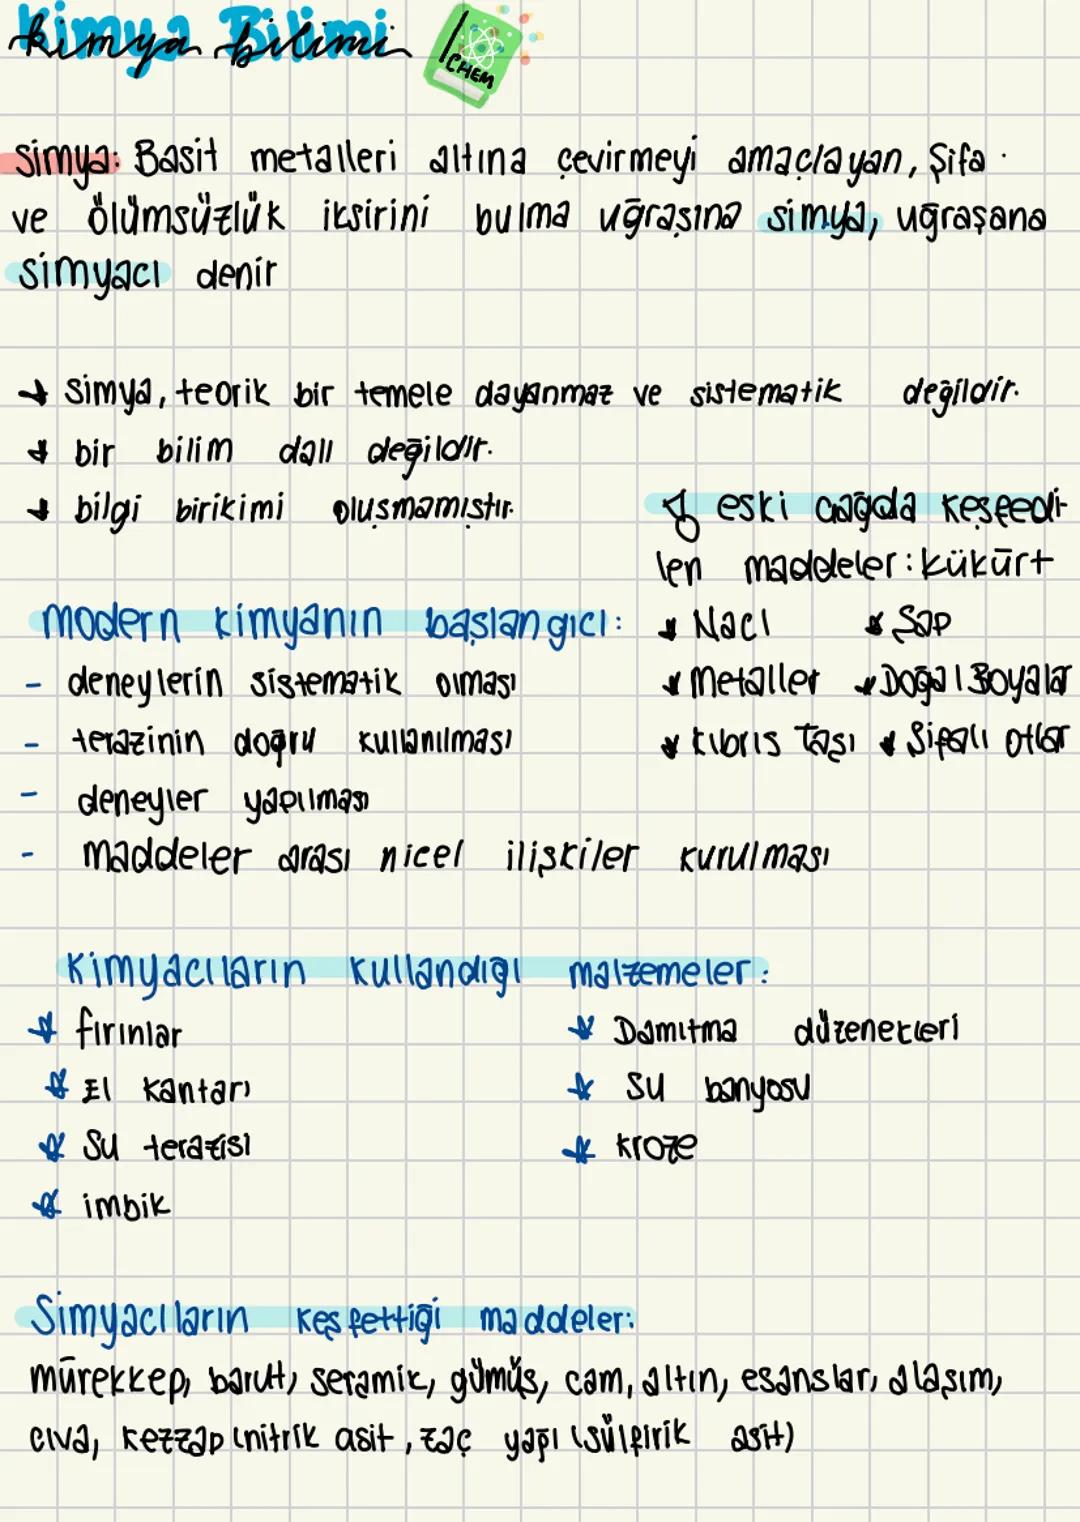 Kimya Bilimi
CHEM
Simya: Basit metalleri altına çevirmeyi amaçlayan, Şifa
ve ölümsüzlük iksirini bulma uğraşına simya, uğraşana
simyacı denir
Simya, teorik bir temele dayanmaz ve sistematik değildir.
bir bilim dalı değildir.
bilgi birikimi oluşmamıştır.
eski çağda keşfedi-
len maddeler: kükürt
NaCl Şap
Metaller Doğal Boyalar
kıbrıs taşı Şifalı otlar
modern kimyanın başlangıcı:
- deneylerin sistematik olması
- terazinin doğru kullanılması
- deneyler yapılması
- maddeler arası nicel ilişkiler kurulması
Kimyacıların kullandığı malzemeler:
fırınlar Damıtma düzenekleri
El kantarı Su banyosu
Su terazisi kroze
imbik
Simyacıların keşfettiği maddeler:
mürekkep, barut, seramik, gümüş, cam, altın, esanslar, alaşım,
cıva, kezzap (nitrik asit, zaç yapı (sülfirik asit)